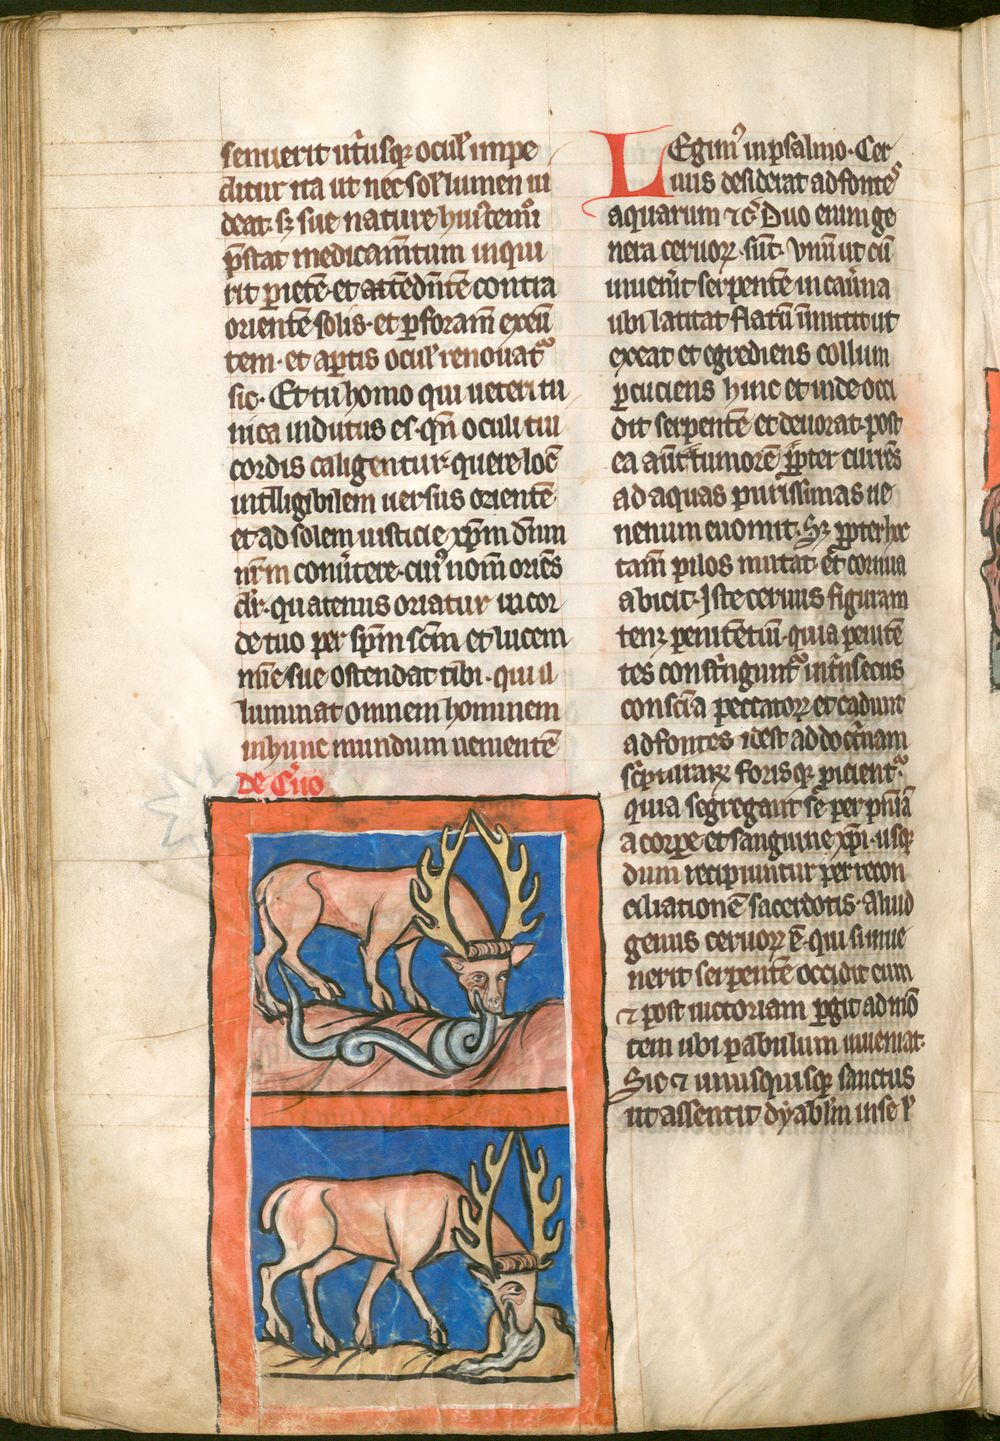 senuerit utͥusqꝫ ocul̕ impe
ditur ita ut nec sol̕ lumen ui
deat· sꝫ sue nature hui᷒cemoͥ
p̄stat medicam̄tum inqui
rit pͥietē· et attēdn̄tē contra
orientē solis· et ꝑforam̄ exeū
tem· et aꝑtis ocul̕ renouat᷑
sic· Et tu homo qui ueteri tu
nica indutus es· qn̄ oculi tui
cordis caligentur· quere locū
intllīgibilem uersus orientē
et ad solem iusticie xp̄m dn̄m
nr̄m conu̕tere· cui᷒ nom̄ oriēs
dr̄· quatenus oriatur in cor
de tuo per sp̄m scm̄ et lucem
mīe sue ostendat tibi· qui il
luminat omnem hominem
in hunc mundum uenientē
de c̕uo
LEgim᷒ in psalmo· Cer
uus desiderat ad fonte᷒
aquarum ⁊ c̕ Duo enim ge
nera ceruoꝝ sūt· Vnū ut cū
inuen̕it serpentē in cau̕na
ubi latitat flatū īmittit ut
exeat et egrediens collum
ꝑcuciens hinc et inde occi
dit serpentē et deuorat· post
ea aut̄ tumorē ꝓpter currēs
ad aquas purissimas ue
nenum euomit· Sꝫ ꝓpter hoc
tam̄ pilos mutat et cornua
abicit· Iste ceruus figuram
tenꝫ penitētiū· quia penitē
tes constͥngunt᷑ intͥnsecus
conscīa peccatoꝝ et cadunt
ad fontes idest ad doctͥnam
scͥpturaꝝ forisqꝫ ꝓicient᷑·
quia segregant sē per pn̄iā
a corꝑe et sanguine xp̄i· usqꝫ
dum recipiuntur per recon
ciliationē sacerdotis· Aliud
genus ceruoꝝ ē· qui si inue
nerit serpentē occidit eum
⁊ post uictoriam ꝑgit ad mō
tem ubi pabulum inueniat·
Sic ⁊ unusquisqꝫ sanctus
ut assentit dyabl̕m in se